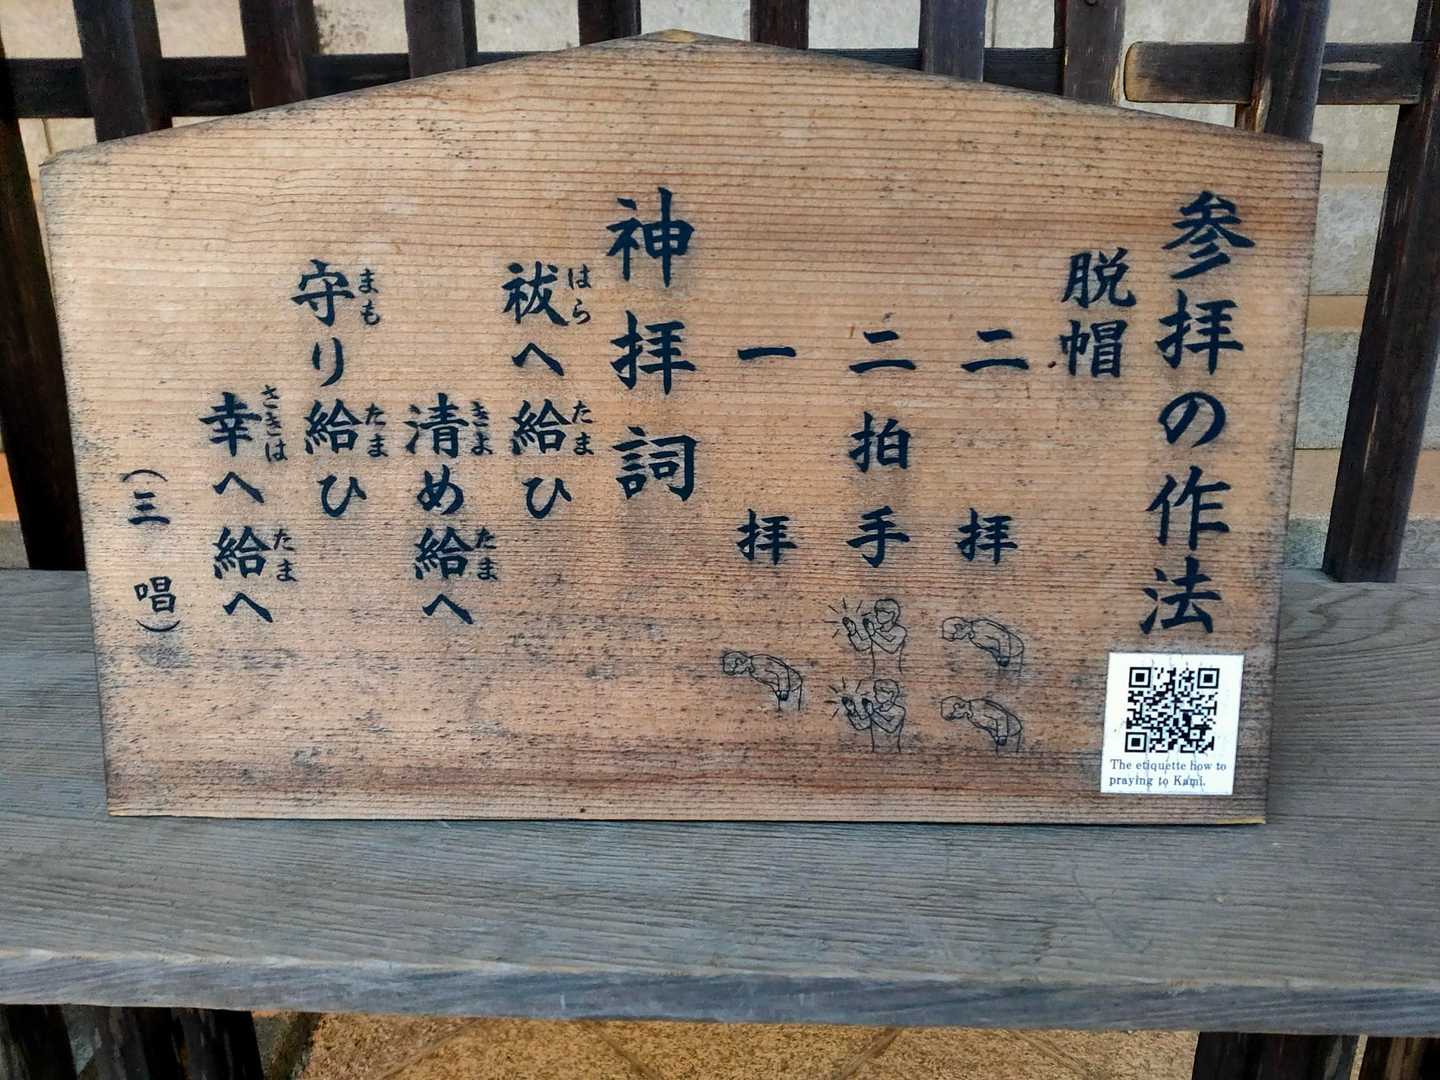 参拝の作法
脱帽
二拝
二拍手
一拝
神拝詞
祓へ給ひ
はら たま
清め給へ
きよ たま
守り給ひ
まも たま
幸へ給へ
さきは たま
(三唱)
The etiquette how to
praying to Kami.